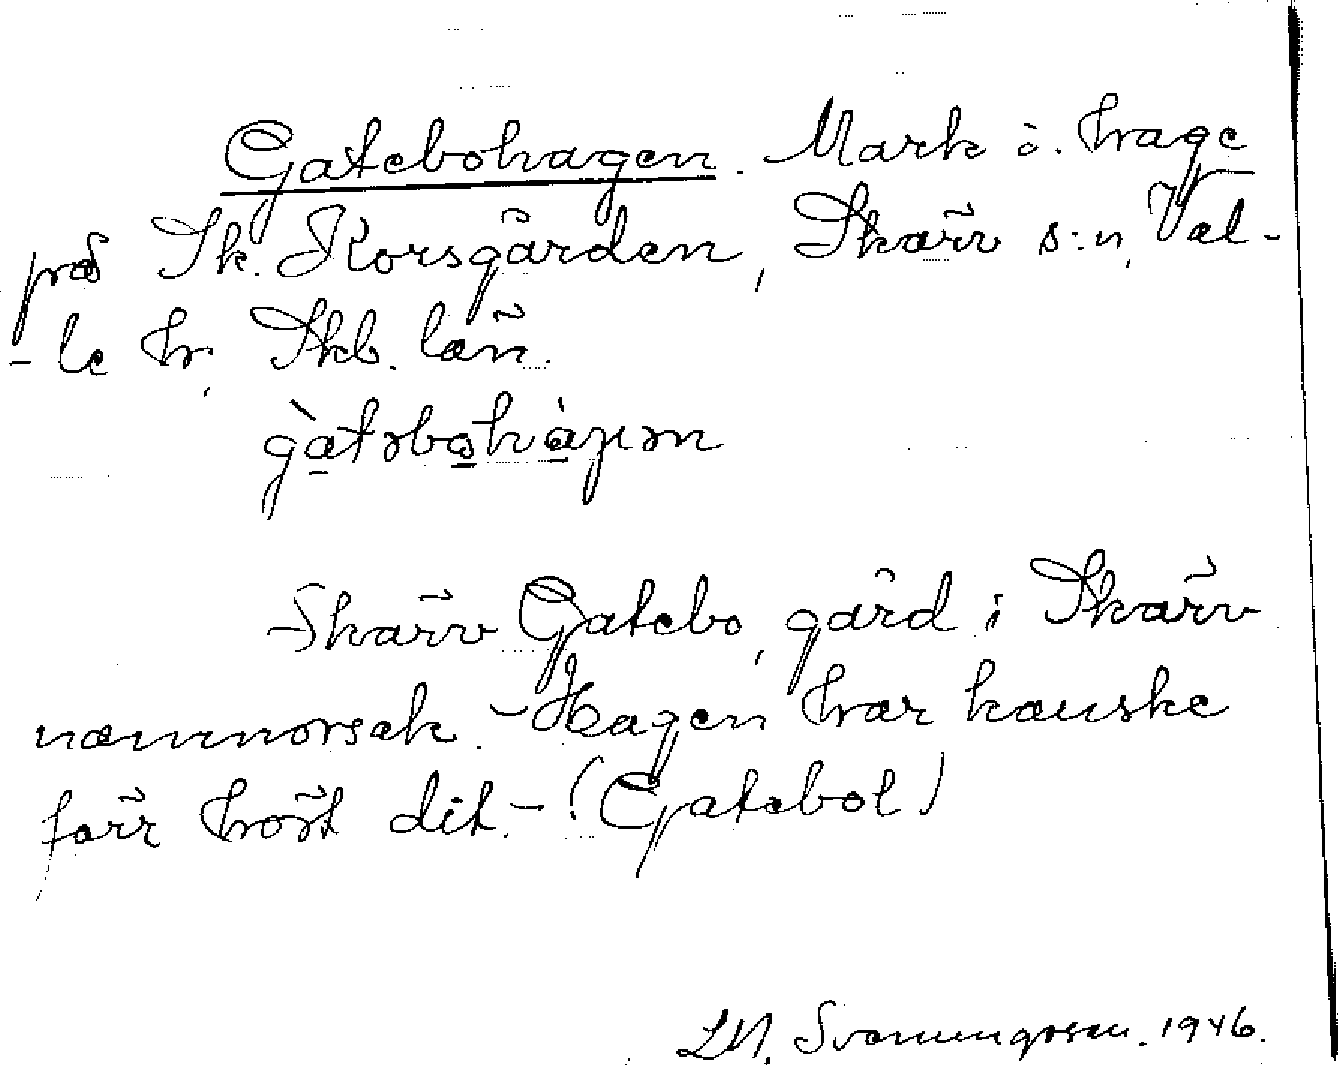 Gatebohagen. Mark o. hage
på Sk. Korsgården, Skärv s:n, Val-
-le hr, Skb. län.
gàtəbohàgən
Skärv Gatebo, gård i Skärv
namnorsak. - Hagen har kanske
förr hört dit. - (Gatebol)
L.N. Svanungssen. 1946.